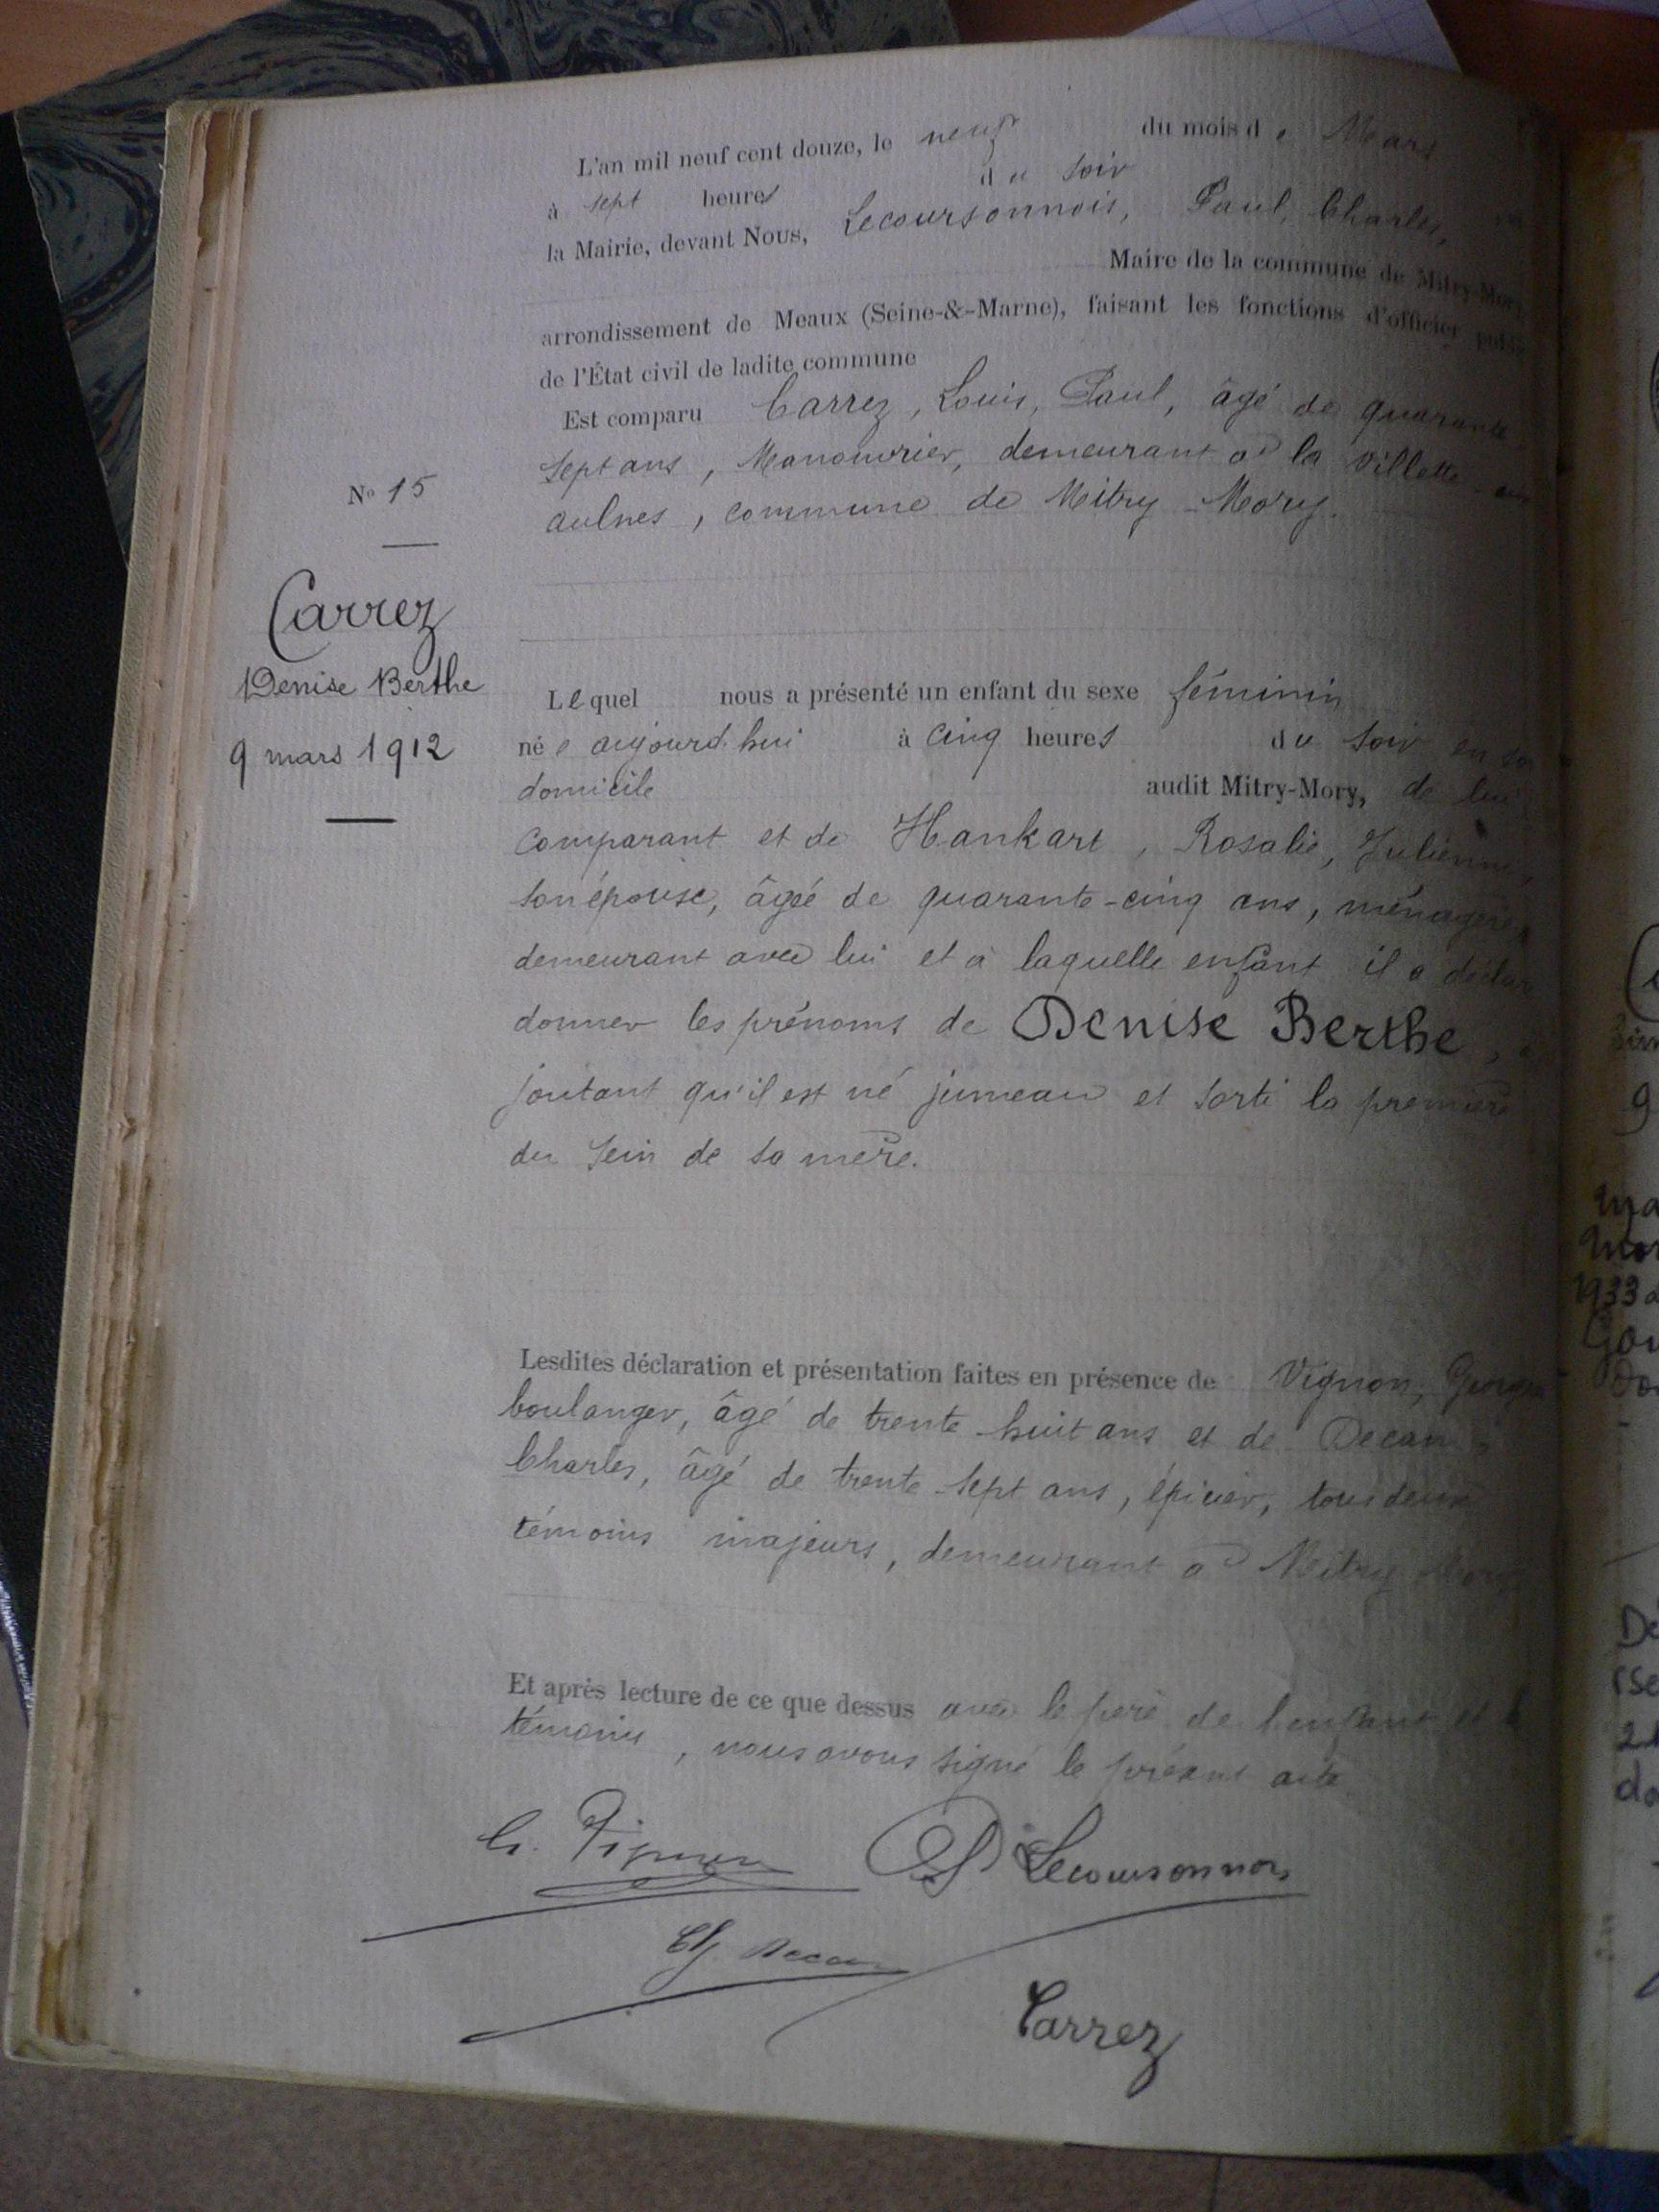 L'an mil neuf cent douze, le neuf du mois de Mars
à sept heures du soir
la Mairie, devant Nous, Lecoursonnois, Paul, Charles,
Maire de la commune de Mitry-Mory
arrondissement de Meaux (Seine-&-Marne), faisant les fonctions d'officier public
de l'État civil de ladite commune
Est comparu Carrez, Louis, Paul, âgé de quarante
sept ans, Manouvrier, demeurant à la Villette-aux
aulnes, commune de Mitry-Mory.
No 15
Carrez
Denise Berthe
9 mars 1912
Lequel nous a présenté un enfant du sexe féminin
née aujourd'hui à cinq heures du soir en son
domicile audit Mitry-Mory, de lui
comparant et de Hankart, Rosalie, Julienne,
son épouse, âgée de quarante-cinq ans, ménagère,
demeurant avec lui et à laquelle enfant il a déclaré
donner les prénoms de Denise Berthe,
joutant qu'il est né jumeau et sorti la première
du sein de sa mère.
Lesdites déclaration et présentation faites en présence de Vignon, Georges
boulanger, âgé de trente-huit ans et de Decan,
Charles, âgé de trente-sept ans, épicier, tous deux
témoins majeurs, demeurant à Mitry-Mory
Et après lecture de ce que dessus avec le père de l'enfant et
témoins, nous avons signé le présent acte
G. Vignon P Lecoursonnois
Ch. Decan
Carrez
9
1933